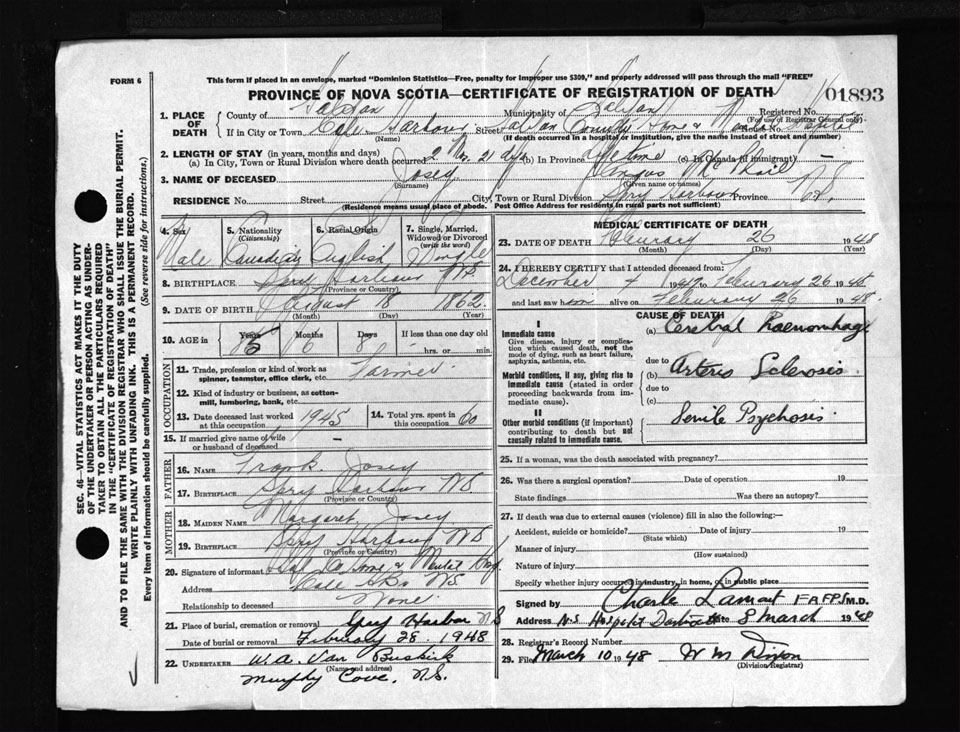 FORM 6
This form if placed in an envelope, marked "Dominion Statistics—Free, penalty for improper use $300," and properly addressed will pass through the mail "FREE"
PROVINCE OF NOVA SCOTIA—CERTIFICATE OF REGISTRATION OF DEATH
01893
1. PLACE OF DEATH
County of Halifax Municipality of Halifax Registered No.
(For use of Registrar General only)
If in City or Town Cole Harbour Street Halifax County Home & Mental Hospital House No.
(Name) (If death occurred in a hospital or institution, give the name instead of street and number)
2. LENGTH OF STAY (in years, months and days)
(a) In City, Town or Rural Division where death occurred 2 21 dys (b) In Province Lifetime (c) In Canada (if immigrant) —
3. NAME OF DECEASED Josey Angus
(Surname) (Given name or names)
RESIDENCE No. Street City, Town or Rural Division Spry Harbour Province N.S.
(Residence means usual place of abode. Post Office Address for residents in rural parts not sufficient)
4. Sex Male
5. Nationality (Citizenship) Canadian
6. Racial Origin English
7. Single, Married, Widowed or Divorced (write the word) Single
8. BIRTHPLACE Spry Harbour N.S.
(Province or Country)
9. DATE OF BIRTH August 18 1862
(Month) (Day) (Year)
10. AGE in Years 85 Months 6 Days 8 If less than one day old hrs. or min.
OCCUPATION
11. Trade, profession or kind of work as spinner, teamster, office clerk, etc. Farmer
12. Kind of industry or business, as cotton-mill, lumbering, bank, etc.
13. Date deceased last worked at this occupation 1945
14. Total yrs. spent in this occupation 60
15. If married give name of wife or husband of deceased —
FATHER
16. NAME Frank Josey
17. BIRTHPLACE Spry Harbour N.S.
(Province or Country)
MOTHER
18. MAIDEN NAME Margaret Josey
19. BIRTHPLACE Spry Harbour N.S.
(Province or Country)
20. Signature of informant Hfx Co Home & Mental Hosp
Address Cole Hbr N.S.
Relationship to deceased None
21. Place of burial, cremation or removal Spry Harbor N S
Date of burial or removal February 28. 1948
22. UNDERTAKER W.A. Van Buskirk
(Name and address)
Murphy Cove, N.S.
MEDICAL CERTIFICATE OF DEATH
23. DATE OF DEATH February 26 1948
(Month) (Day) (Year)
24. I HEREBY CERTIFY that I attended deceased from:
December 4 1947 to February 26 1948
and last saw him alive on February 26 1948.
CAUSE OF DEATH
I
Immediate cause
Give disease, injury or complication which caused death, not the mode of dying, such as heart failure, asphyxia, asthenia, etc.
(a) Cerebral Haemorrhage
due to
Morbid conditions, if any, giving rise to immediate cause (stated in order proceeding backwards from immediate cause).
(b) Arterio Sclerosis
due to
(c)
II
Other morbid conditions (if important) contributing to death but not causally related to immediate cause.
Senile Psychosis
25. If a woman, was the death associated with pregnancy?
26. Was there a surgical operation? Date of operation 19
State findings Was there an autopsy?
27. If death was due to external causes (violence) fill in also the following:—
Accident, suicide or homicide? Date of injury 19
(State which)
Manner of injury
(How sustained)
Nature of injury
Specify whether injury occurred in industry, in home, or in public place
Signed by Charles Lamont M.D.
Address N.S. Hospital Dartmouth Date 8 March 1948
28. Registrar's Record Number
29. Filed March 10 1948 W M Dixon
(Division Registrar)
SEC. 46—VITAL STATISTICS ACT MAKES IT THE DUTY
OF THE UNDERTAKER OR PERSON ACTING AS UNDER-
TAKER TO OBTAIN ALL THE PARTICULARS REQUIRED
IN THE "CERTIFICATE OF REGISTRATION OF DEATH"
AND TO FILE THE SAME WITH THE DIVISION REGISTRAR WHO SHALL ISSUE THE BURIAL PERMIT.
WRITE PLAINLY WITH UNFADING INK. THIS IS A PERMANENT RECORD.
Every item of information should be carefully supplied. (See reverse side for instructions.)